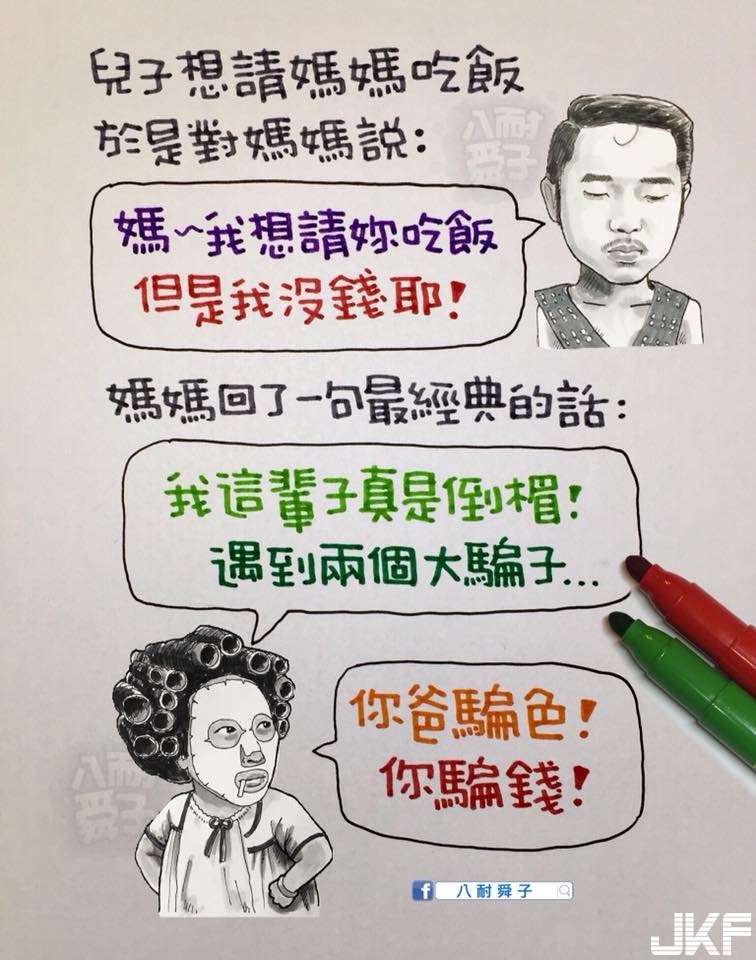 兒子想請媽媽吃飯
於是對媽媽說：
媽～我想請妳吃飯
但是我沒錢耶！
媽媽回了一句最經典的話：
我這輩子真是倒楣！
遇到兩個大騙子...
你爸騙色！
你騙錢！
八耐舜子
八耐舜子
f 八耐舜子
JKF